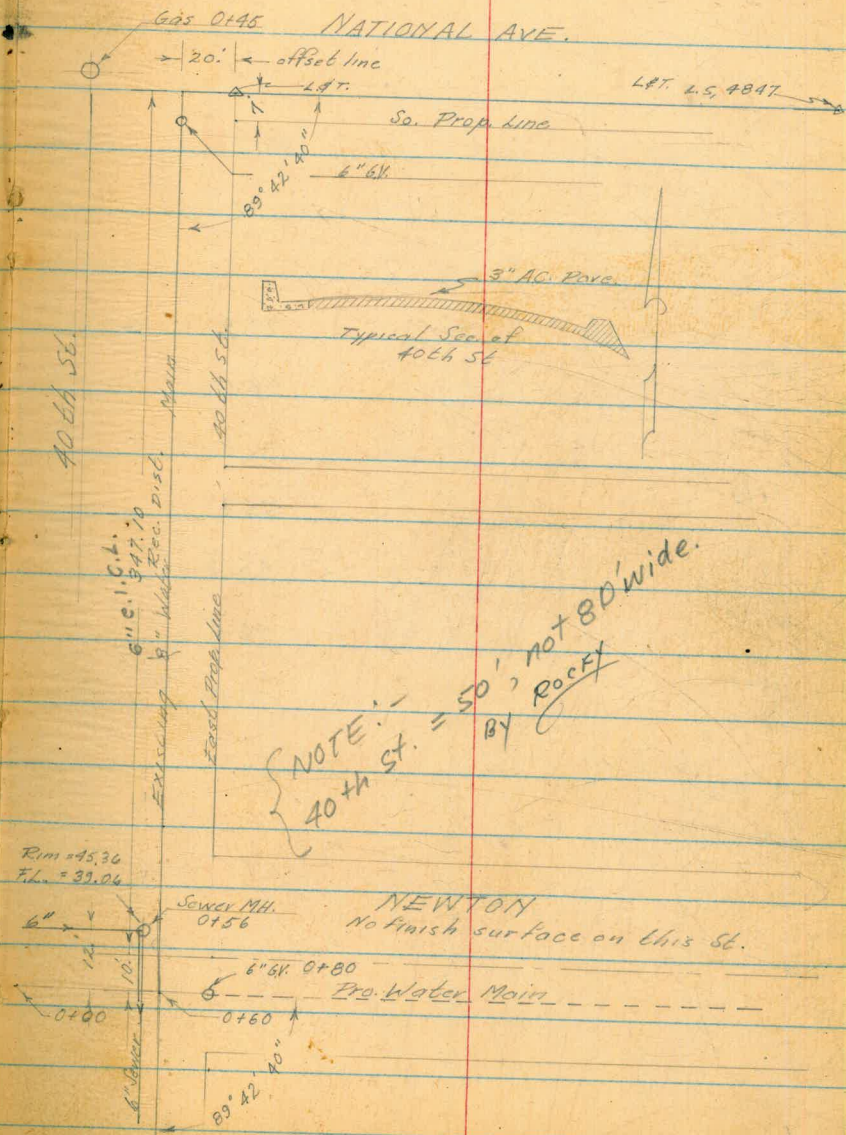 Gas 0+45
NATIONAL AVE.
20'
offset line
L&T.
L&T. L.S. 4847
7'
So. Prop. Line
6" G.V.
89° 42' 40"
3" A.C. Pave.
Typical Sec. of
40th St
40th St.
40th St.
6" C.I.C.L.
347.10
Existing 8" Water Rec. Dist. Main
East Prop. Line
NOTE:-
40th St. = 50', not 80' wide.
BY ROCKY
Rim = 45.36
F.L. = 39.06
Sewer MH.
0+56
NEWTON
No finish surface on this St.
6"
12'
10'
6" G.V. 0+80
Pro. Water Main
0+00
0+60
6" Sewer
89° 42' 40"